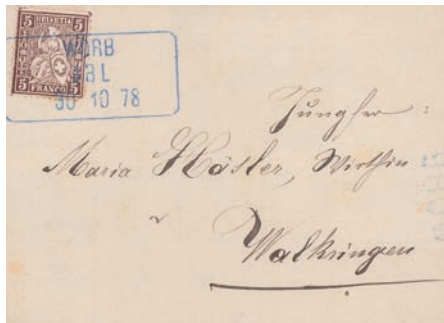 5 HELVETIA 5
5 FRANCO 5
WORB
BL
30 10 78
Jungfer :
Maria Häsler, Wirthin
Walkringen